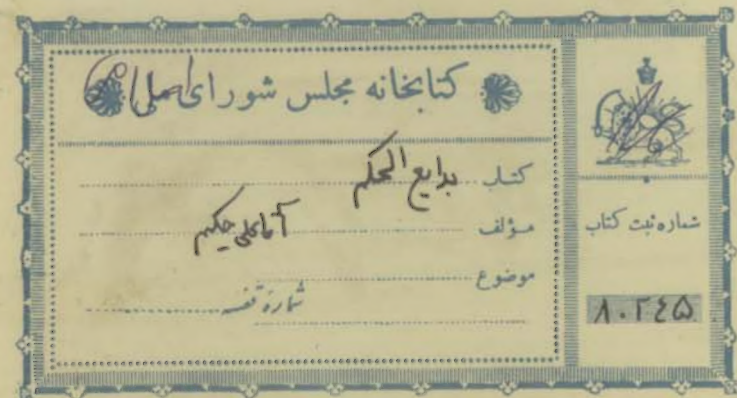 کتابخانه مجلس شورای اسلامی
کتاب بدایع الحکم
مؤلف آقاعلی حکیم
موضوع
شماره قفسه
شماره ثبت کتاب
۸۰۲۴۵